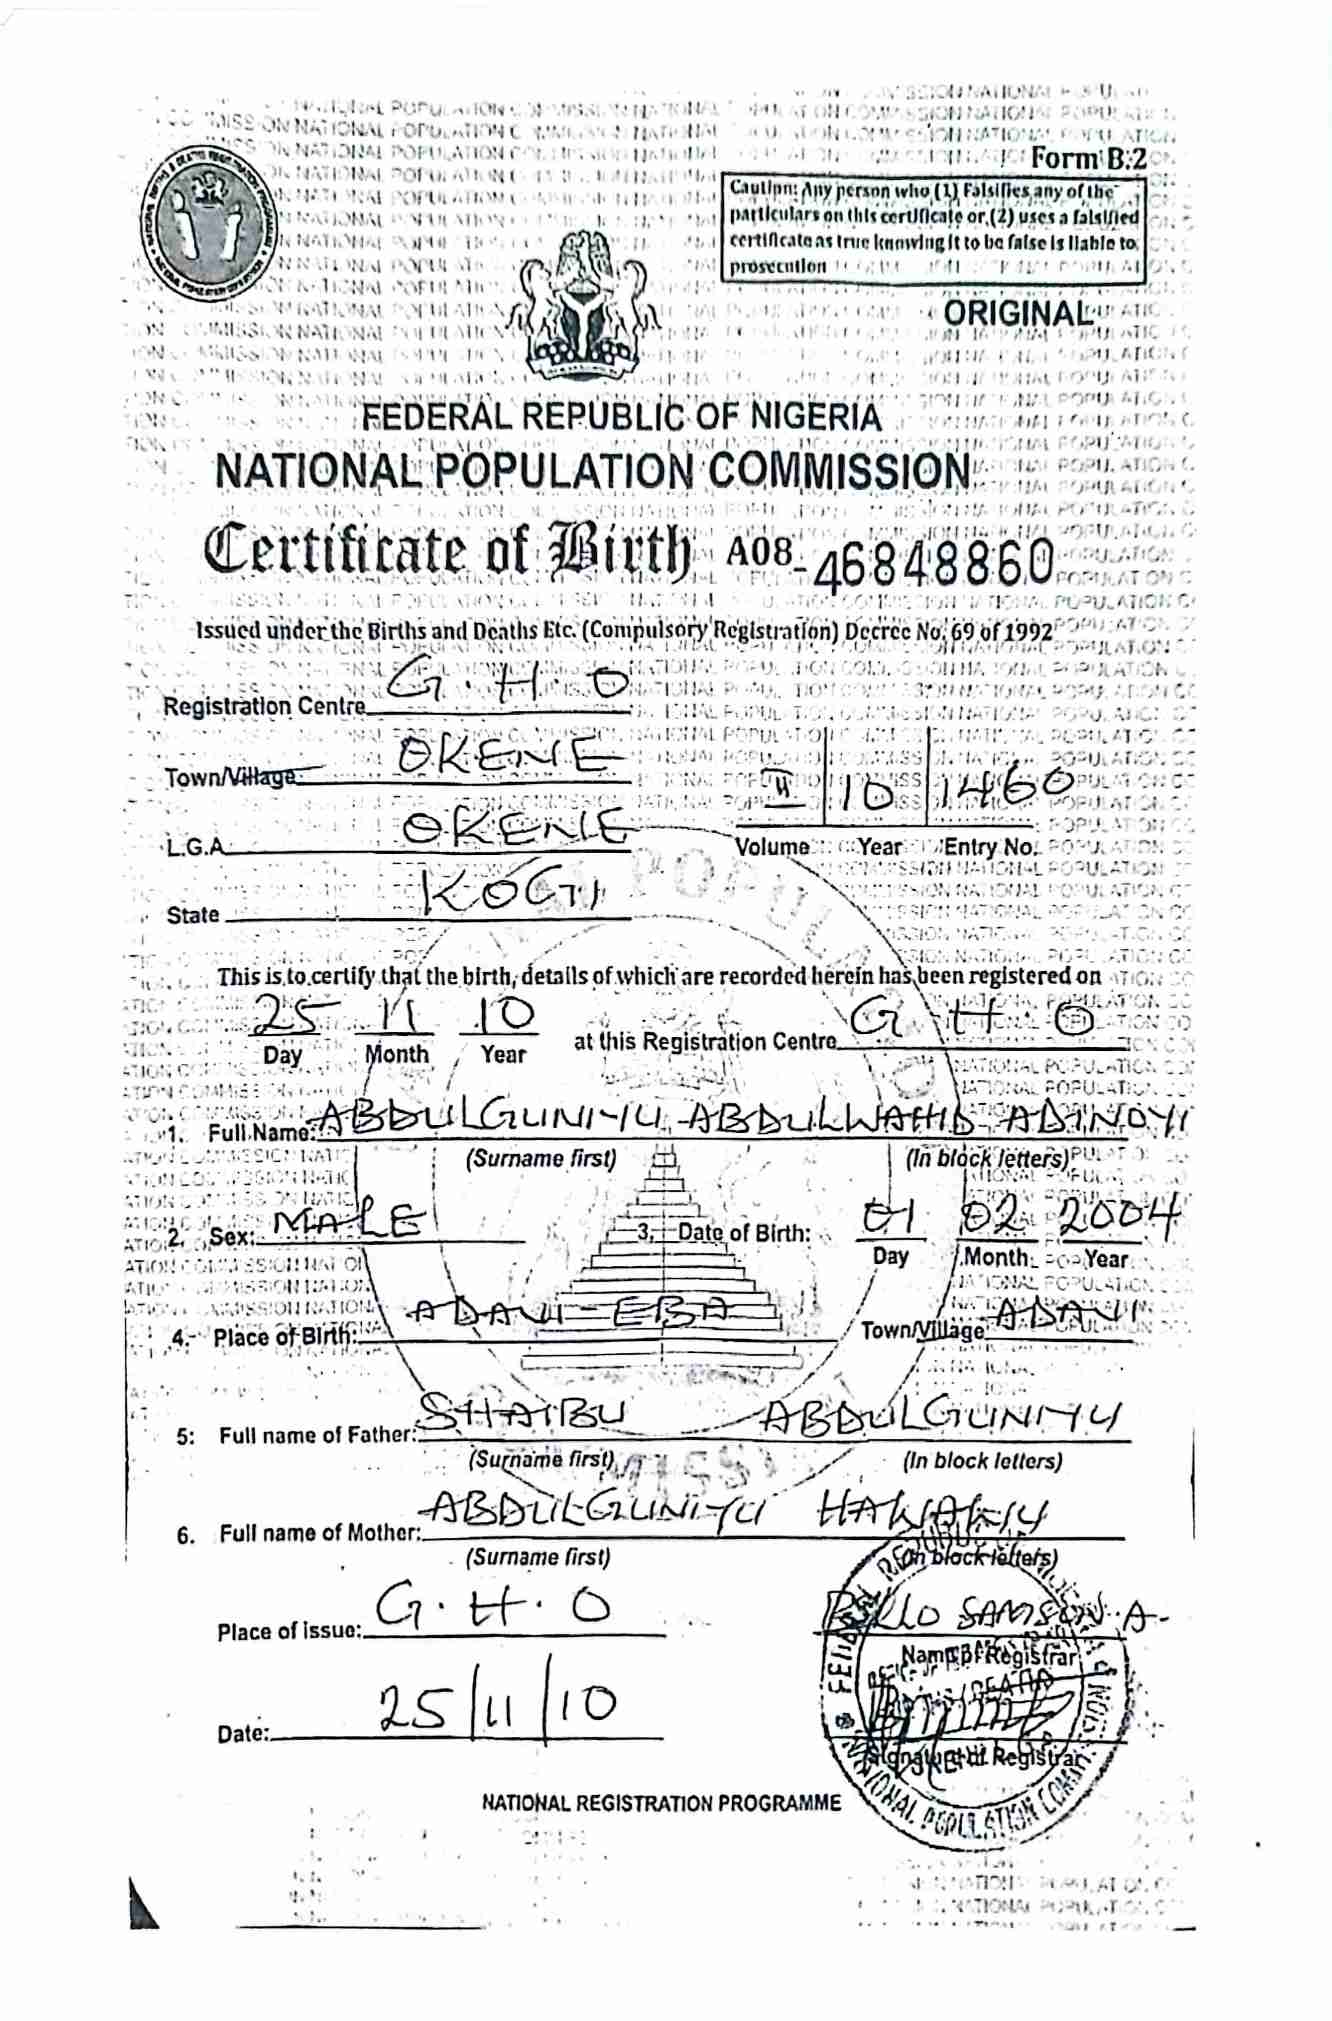 Form B.2
Caution: Any person who (1) Falsifies any of the
particulars on this certificate or (2) uses a falsified
certificate as true knowing it to be false is liable to
prosecution
ORIGINAL
FEDERAL REPUBLIC OF NIGERIA
NATIONAL POPULATION COMMISSION
Certificate of Birth A08-46848860
Issued under the Births and Deaths Etc. (Compulsory Registration) Decree No. 69 of 1992
Registration Centre G.H.O
Town/Village OKENE
II 10 1460
L.G.A OKENE
Volume Year Entry No.
State KOGI
This is to certify that the birth, details of which are recorded herein has been registered on
25 11 10
Day Month Year at this Registration Centre G H O
1. Full Name: ABDULGUNIYU ABDULWAHID ADINOYI
(Surname first) (In block letters)
2. Sex: MALE 3. Date of Birth: 01 02 2004
Day Month Year
4. Place of Birth: ADAVI-EBA Town/Village ADAVI
5: Full name of Father: SHAIBU ABDULGUNIYU
(Surname first) (In block letters)
6. Full name of Mother: ABDULGUNIYU HAWAWU
(Surname first) (In block letters)
Place of issue: G.H.O BELLO SAMSON A-
Name of Registrar
Date: 25/11/10
Signature of Registrar
FEDERAL REPUBLIC OF NIGERIA
NATIONAL POPULATION COMMISSION
NATIONAL REGISTRATION PROGRAMME